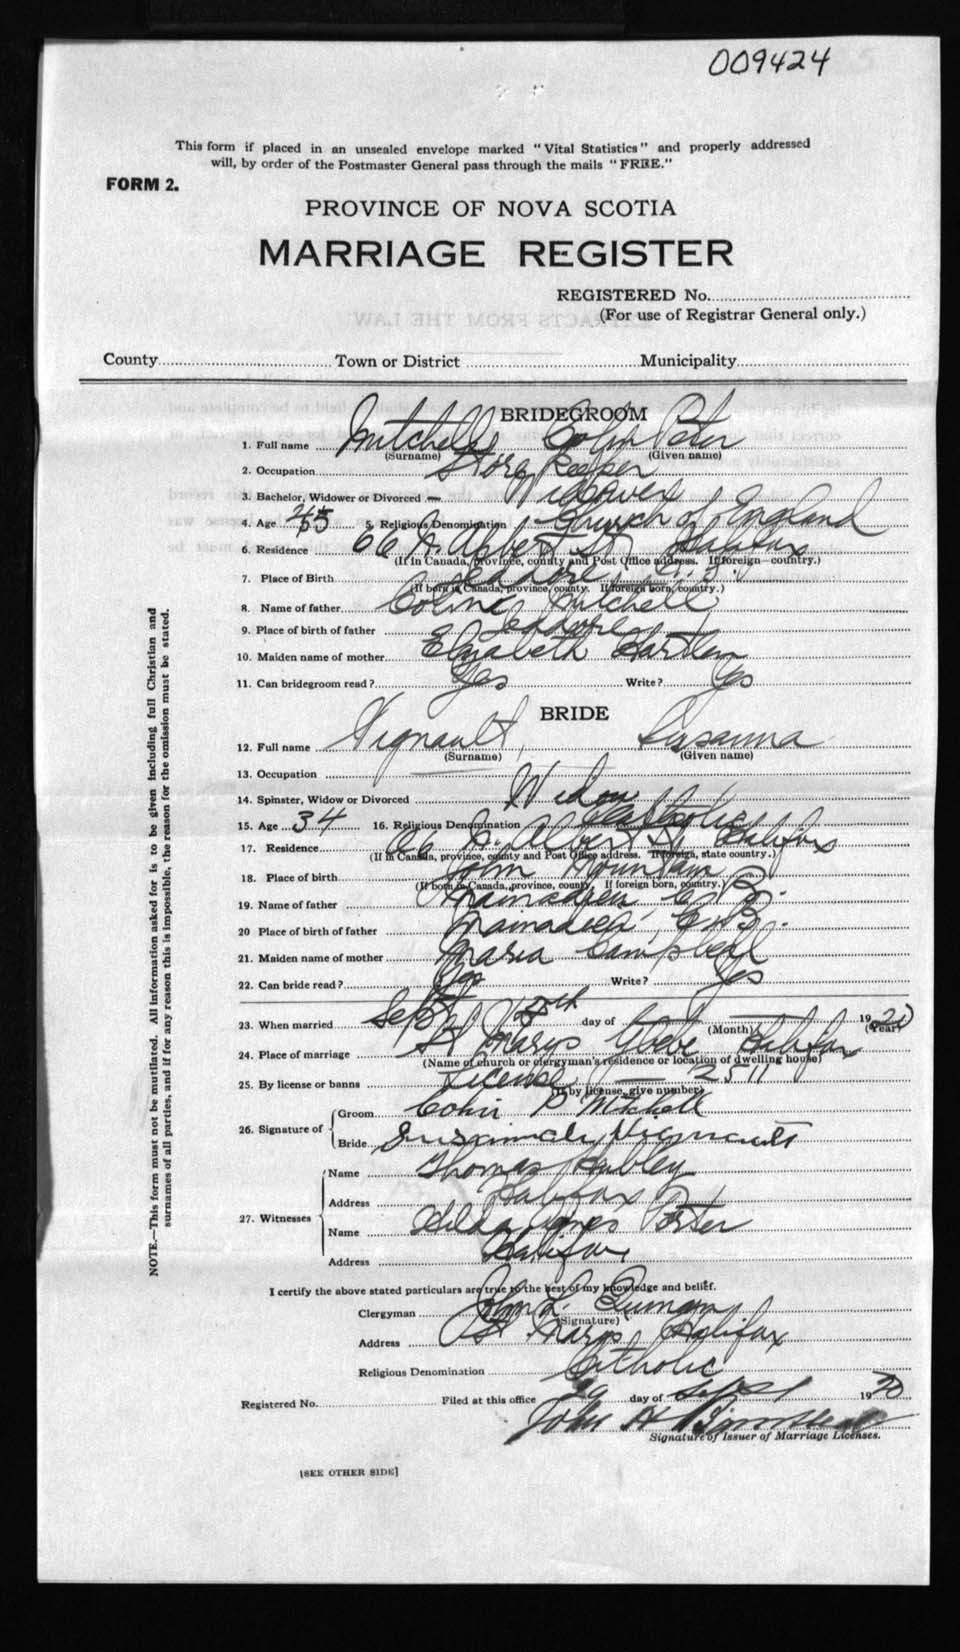 009424
This form if placed in an unsealed envelope marked "Vital Statistics" and properly addressed
will, by order of the Postmaster General pass through the mails "FREE."
FORM 2.
PROVINCE OF NOVA SCOTIA
MARRIAGE REGISTER
REGISTERED No.
(For use of Registrar General only.)
County Town or District Municipality
BRIDEGROOM
1. Full name Mitchell Colin Peter
(Surname) (Given name)
2. Occupation Store Keeper
3. Bachelor, Widower or Divorced — Widower
4. Age 5. Religious Denomination Church of England
6. Residence 66 A. Albert St Halifax
(If in Canada, province, county and Post Office address. If foreign—country.)
7. Place of Birth
(If born in Canada, province, county. If foreign born, country.)
8. Name of father Mitchell
9. Place of birth of father
10. Maiden name of mother Elizabeth Hartlen
11. Can bridegroom read? Yes Write? Yes
BRIDE
12. Full name Vignault, Susanna
(Surname) (Given name)
13. Occupation
14. Spinster, Widow or Divorced Widow
15. Age 34 16. Religious Denomination Catholic
17. Residence 66 A. Albert St Halifax
(If in Canada, province, county and Post Office address. If foreign, state country.)
18. Place of birth John Fountain
(If born in Canada, province, county. If foreign born, country.)
19. Name of father Mainadieu C B.
20 Place of birth of father Mainadieu, C. B.
21. Maiden name of mother Maria Campbell
22. Can bride read? Yes Write? Yes
23. When married Sept day of 1920
(Month) (Year)
24. Place of marriage St Marys Glebe Halifax
(Name of church or clergyman's residence or location of dwelling house)
25. By license or banns License — 2511
(If by license, give number)
26. Signature of Groom Colin P Mitchell
Bride Susannah Vignault
27. Witnesses Name Thomas Hubley
Address Halifax
Name Hilda Agnes Porter
Address Halifax
I certify the above stated particulars are true to the best of my knowledge and belief.
Clergyman John L. Quinan
(Signature)
Address St Marys Halifax
Religious Denomination Catholic
Registered No. Filed at this office 29 day of Sept 1920
John H
Signature of Issuer of Marriage Licenses.
[SEE OTHER SIDE]
NOTE.—This form must not be mutilated. All information asked for is to be given including full Christian and
surnames of all parties, and if for any reason this is impossible, the reason for the omission must be stated.